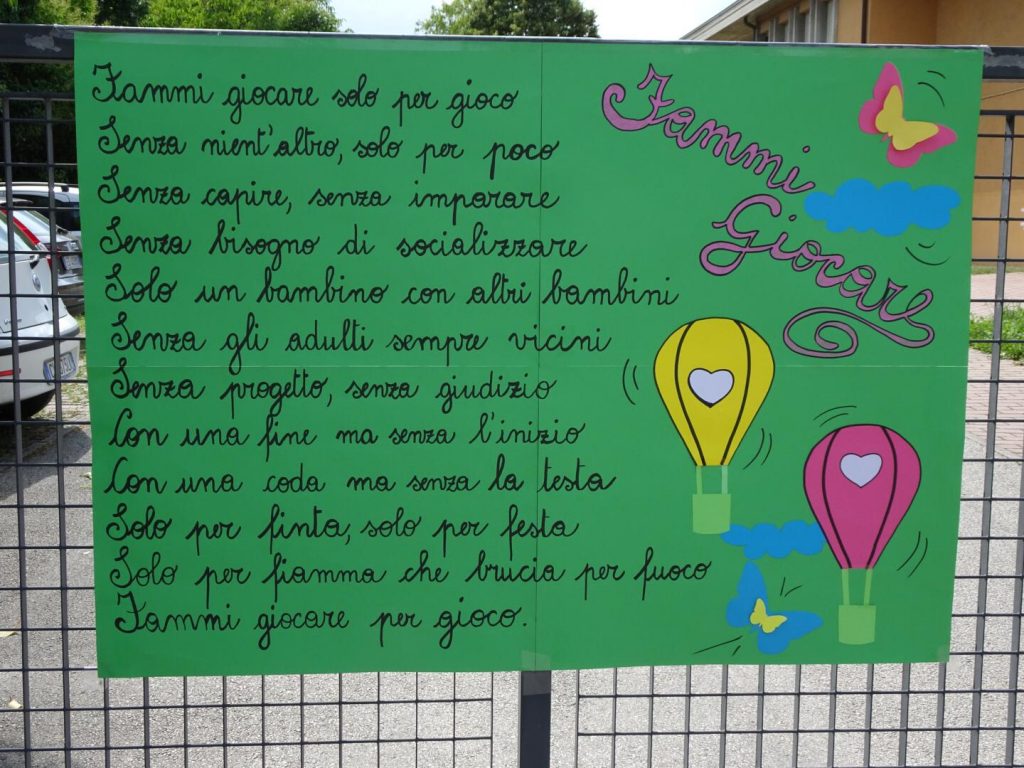 Fammi giocare solo per gioco
Senza nient'altro, solo per poco
Senza capire, senza imparare
Senza bisogno di socializzare
Solo un bambino con altri bambini
Senza gli adulti sempre vicini
Senza progetto, senza giudizio
Con una fine ma senza l'inizio
Con una coda ma senza la testa
Solo per finta, solo per festa
Solo per fiamma che brucia per fuoco
Fammi giocare per gioco.
Fammi
Giocare